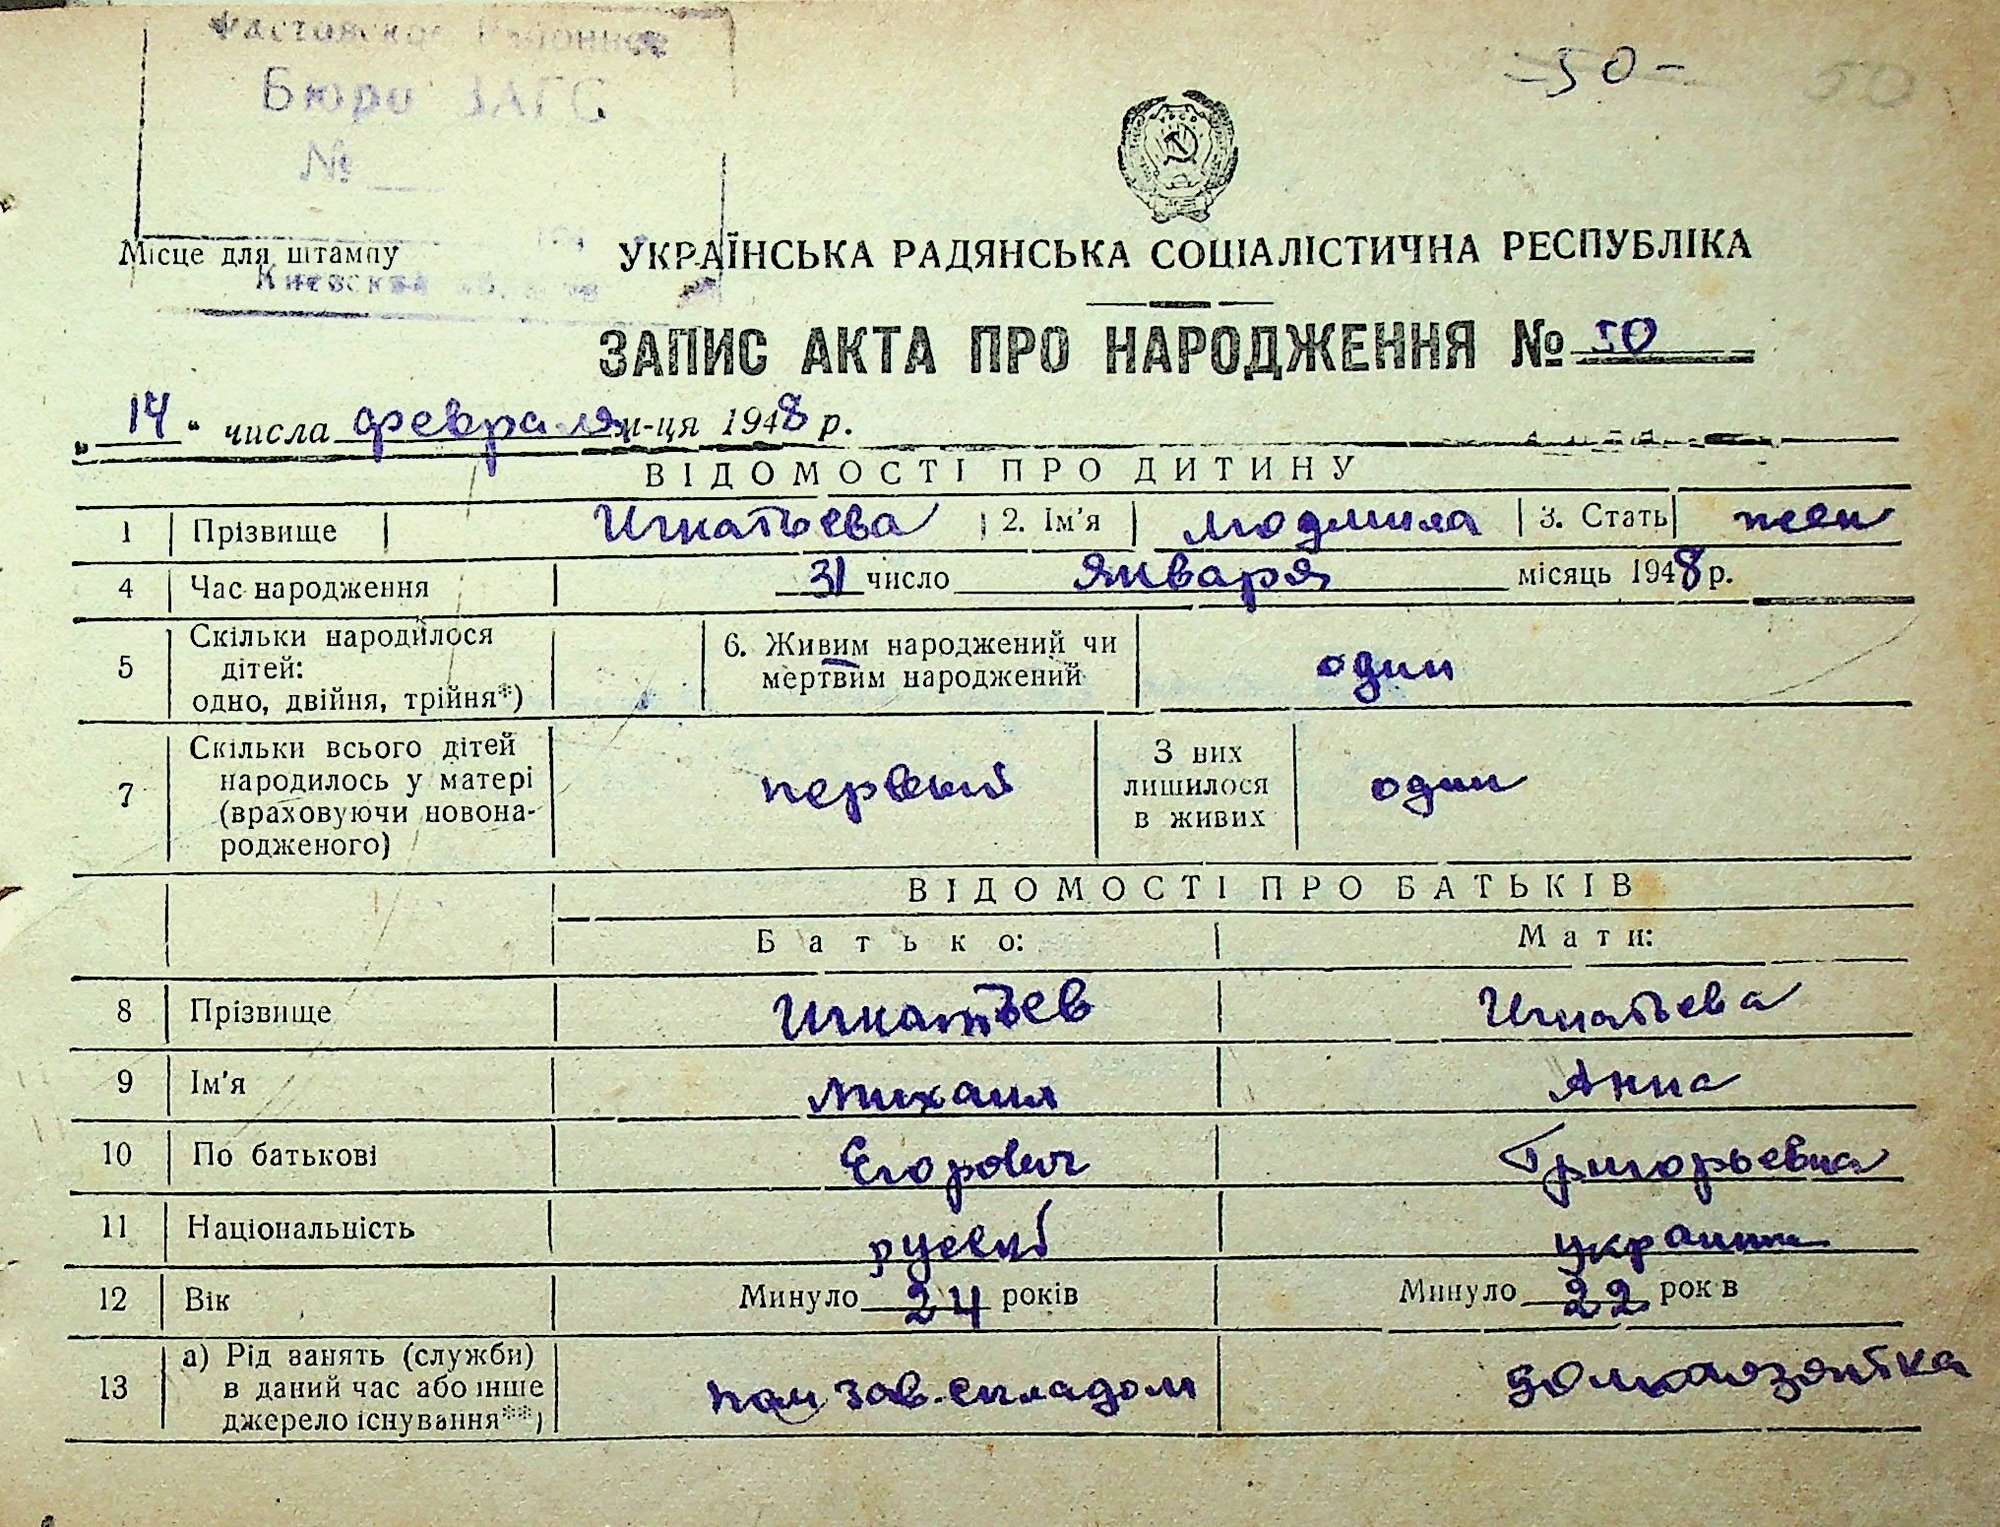 Фастовское Районное
Бюро ЗАГС
№
-50-
50
Місце для штампу
УКРАЇНСЬКА РАДЯНСЬКА СОЦІАЛІСТИЧНА РЕСПУБЛІКА
ЗАПИС АКТА ПРО НАРОДЖЕННЯ № 50
„14“ числа февраля м-ця 1948 р.
ВІДОМОСТІ ПРО ДИТИНУ
1 Прізвище Игнатьева 2. Ім'я Людмила 3. Стать жен
4 Час народження 31 число января місяць 1948 р.
5 Скільки народилося дітей: одно, двійня, трійня*) 6. Живим народжений чи мертвим народжений один
7 Скільки всього дітей народилось у матері (враховуючи новонародженого) первый З них лишилося в живих один
ВІДОМОСТІ ПРО БАТЬКІВ
Батько: Мати:
8 Прізвище Игнатьев Игнатьева
9 Ім'я Михаил Анна
10 По батькові Егорович Григорьевна
11 Національність русский украинка
12 Вік Минуло 24 років Минуло 22 рок в
13 а) Рід занять (служби) в даний час або інше джерело існування**) пом зав. складом домохозяйка